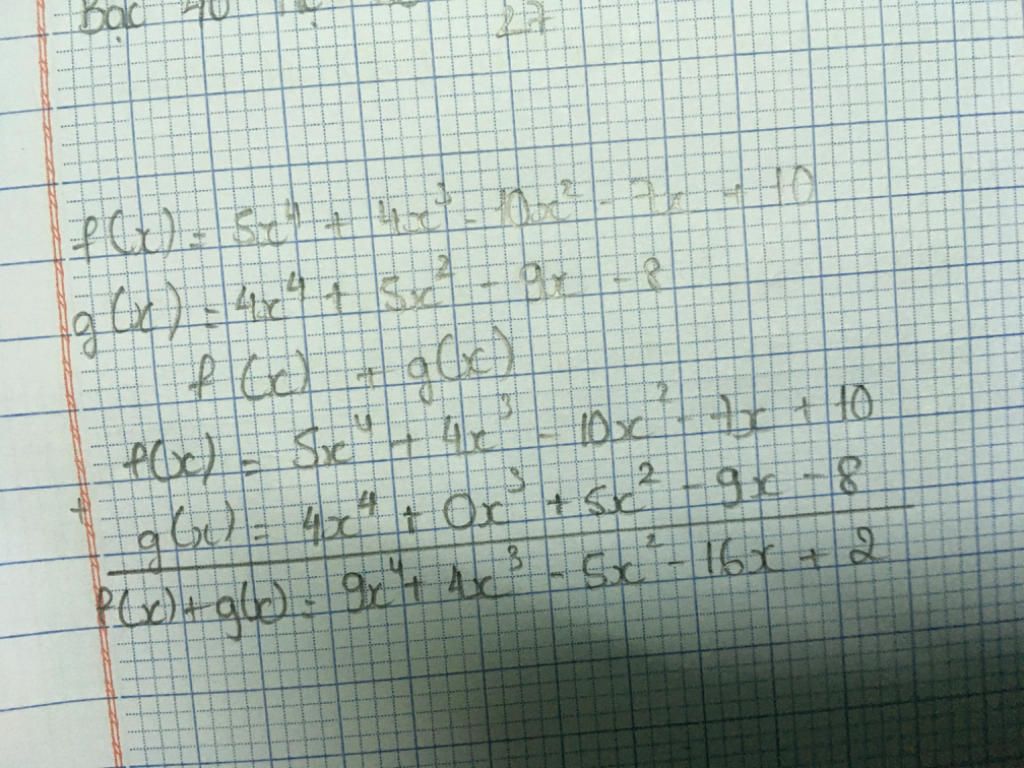 Bậc 40
27
f(x) = 5x⁴ + 4x³ - 10x² - 7x + 10
g(x) = 4x⁴ + 5x² - 9x - 8
f(x) + g(x)
f(x) = 5x⁴ + 4x³ - 10x² - 7x + 10
+ g(x) = 4x⁴ + 0x³ + 5x² - 9x - 8
f(x) + g(x) = 9x⁴ + 4x³ - 5x² - 16x + 2